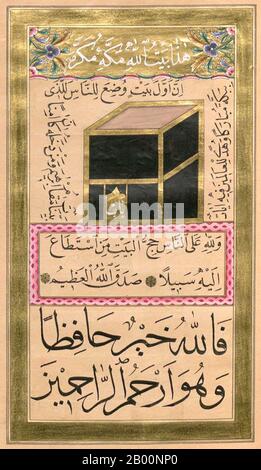 هذا بيت الله مكة مكرمه
ان اول بيت وضع للناس للذى
ببكة مباركا وهدى للعالمين فيه ايات
بينات مقام ابراهيم ومن دخله كان امنا
ولله على الناس حج البيت من استطاع
اليه سبيلا صدق الله العظيم
فالله خير حافظا
وهو ارحم الراحمين
2B00NP0